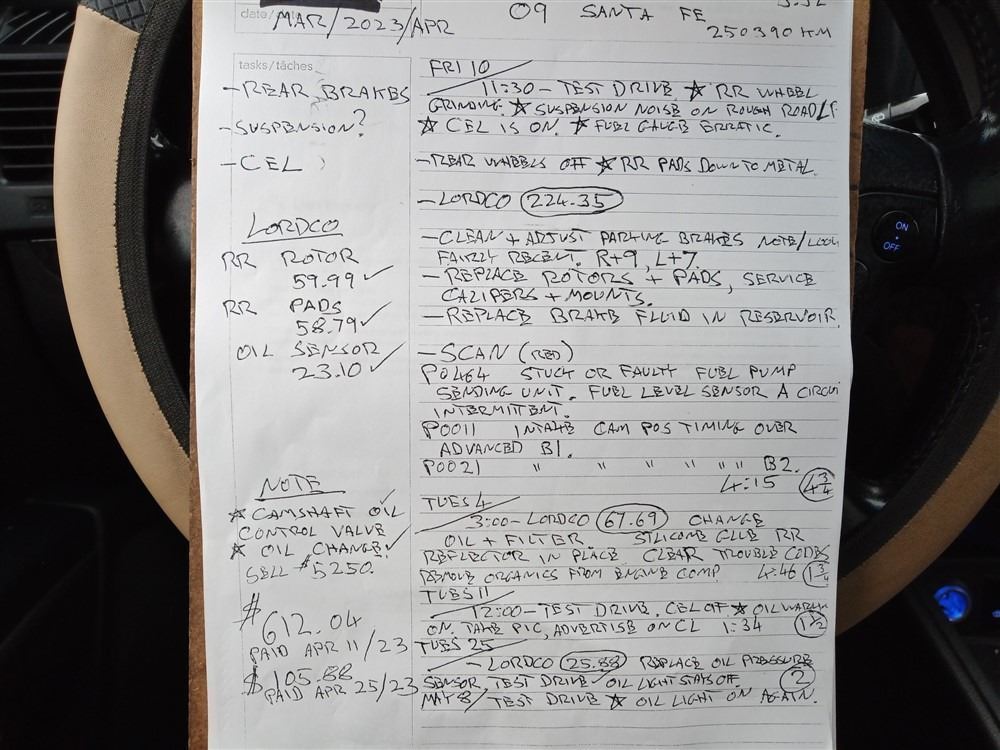 date/date
MAR/2023/APR
09 SANTA FE
250390 KM
tasks/tâches
- REAR BRAKES
- SUSPENSION?
- CEL
LORDCO
RR ROTOR
59.99 ✓
RR PADS
58.79 ✓
OIL SENSOR
23.10 ✓
NOTE
★ CAMSHAFT OIL ✓
CONTROL VALVE
★ OIL CHANGE ✓
SELL $5250.
$612.04
PAID APR 11/23
$105.88
PAID APR 25/23
FRI 10
11:30 - TEST DRIVE ★ RR WHEEL
GRINDING. ★ SUSPENSION NOISE ON ROUGH ROAD
★ CEL IS ON. ★ FUEL GAUGE ERRATIC.
- REAR WHEELS OFF ★ RR PADS DOWN TO METAL.
- LORDCO 224.35
- CLEAN + ADJUST PARKING BRAKES NOTE/LOOK
FAIRLY RECENT. R+9, L+7.
- REPLACE ROTORS + PADS, SERVICE
CALIPERS + MOUNTS.
- REPLACE BRAKE FLUID IN RESERVOIR.
- SCAN (RED)
P0464 STUCK OR FAULTY FUEL PUMP
SENDING UNIT. FUEL LEVEL SENSOR A CIRCUI
INTERMITTENT.
P0011 INTAKE CAM POS TIMING OVER
ADVANCED B1.
P0021 " " " " " " B2.
4:15 4 3/4
TUES 4
3:00 - LORDCO 67.69 CHANGE
OIL + FILTER SILICONE GLUE RR
REFLECTOR IN PLACE CLEAR TROUBLE CODES
REMOVE ORGANICS FROM ENGINE COMP. 4:46 1 3/4
TUES 11
12:00 - TEST DRIVE. CEL OFF ★ OIL WARN
ON. TAKE PIC, ADVERTISE ON CL 1:34 1 1/2
TUES 25
- LORDCO 25.88 REPLACE OIL PRESSURE
SENSOR, TEST DRIVE ✓ OIL LIGHT STAYS OFF. 2
MAY 8/ TEST DRIVE ★ OIL LIGHT ON AGAIN.
ON
OFF